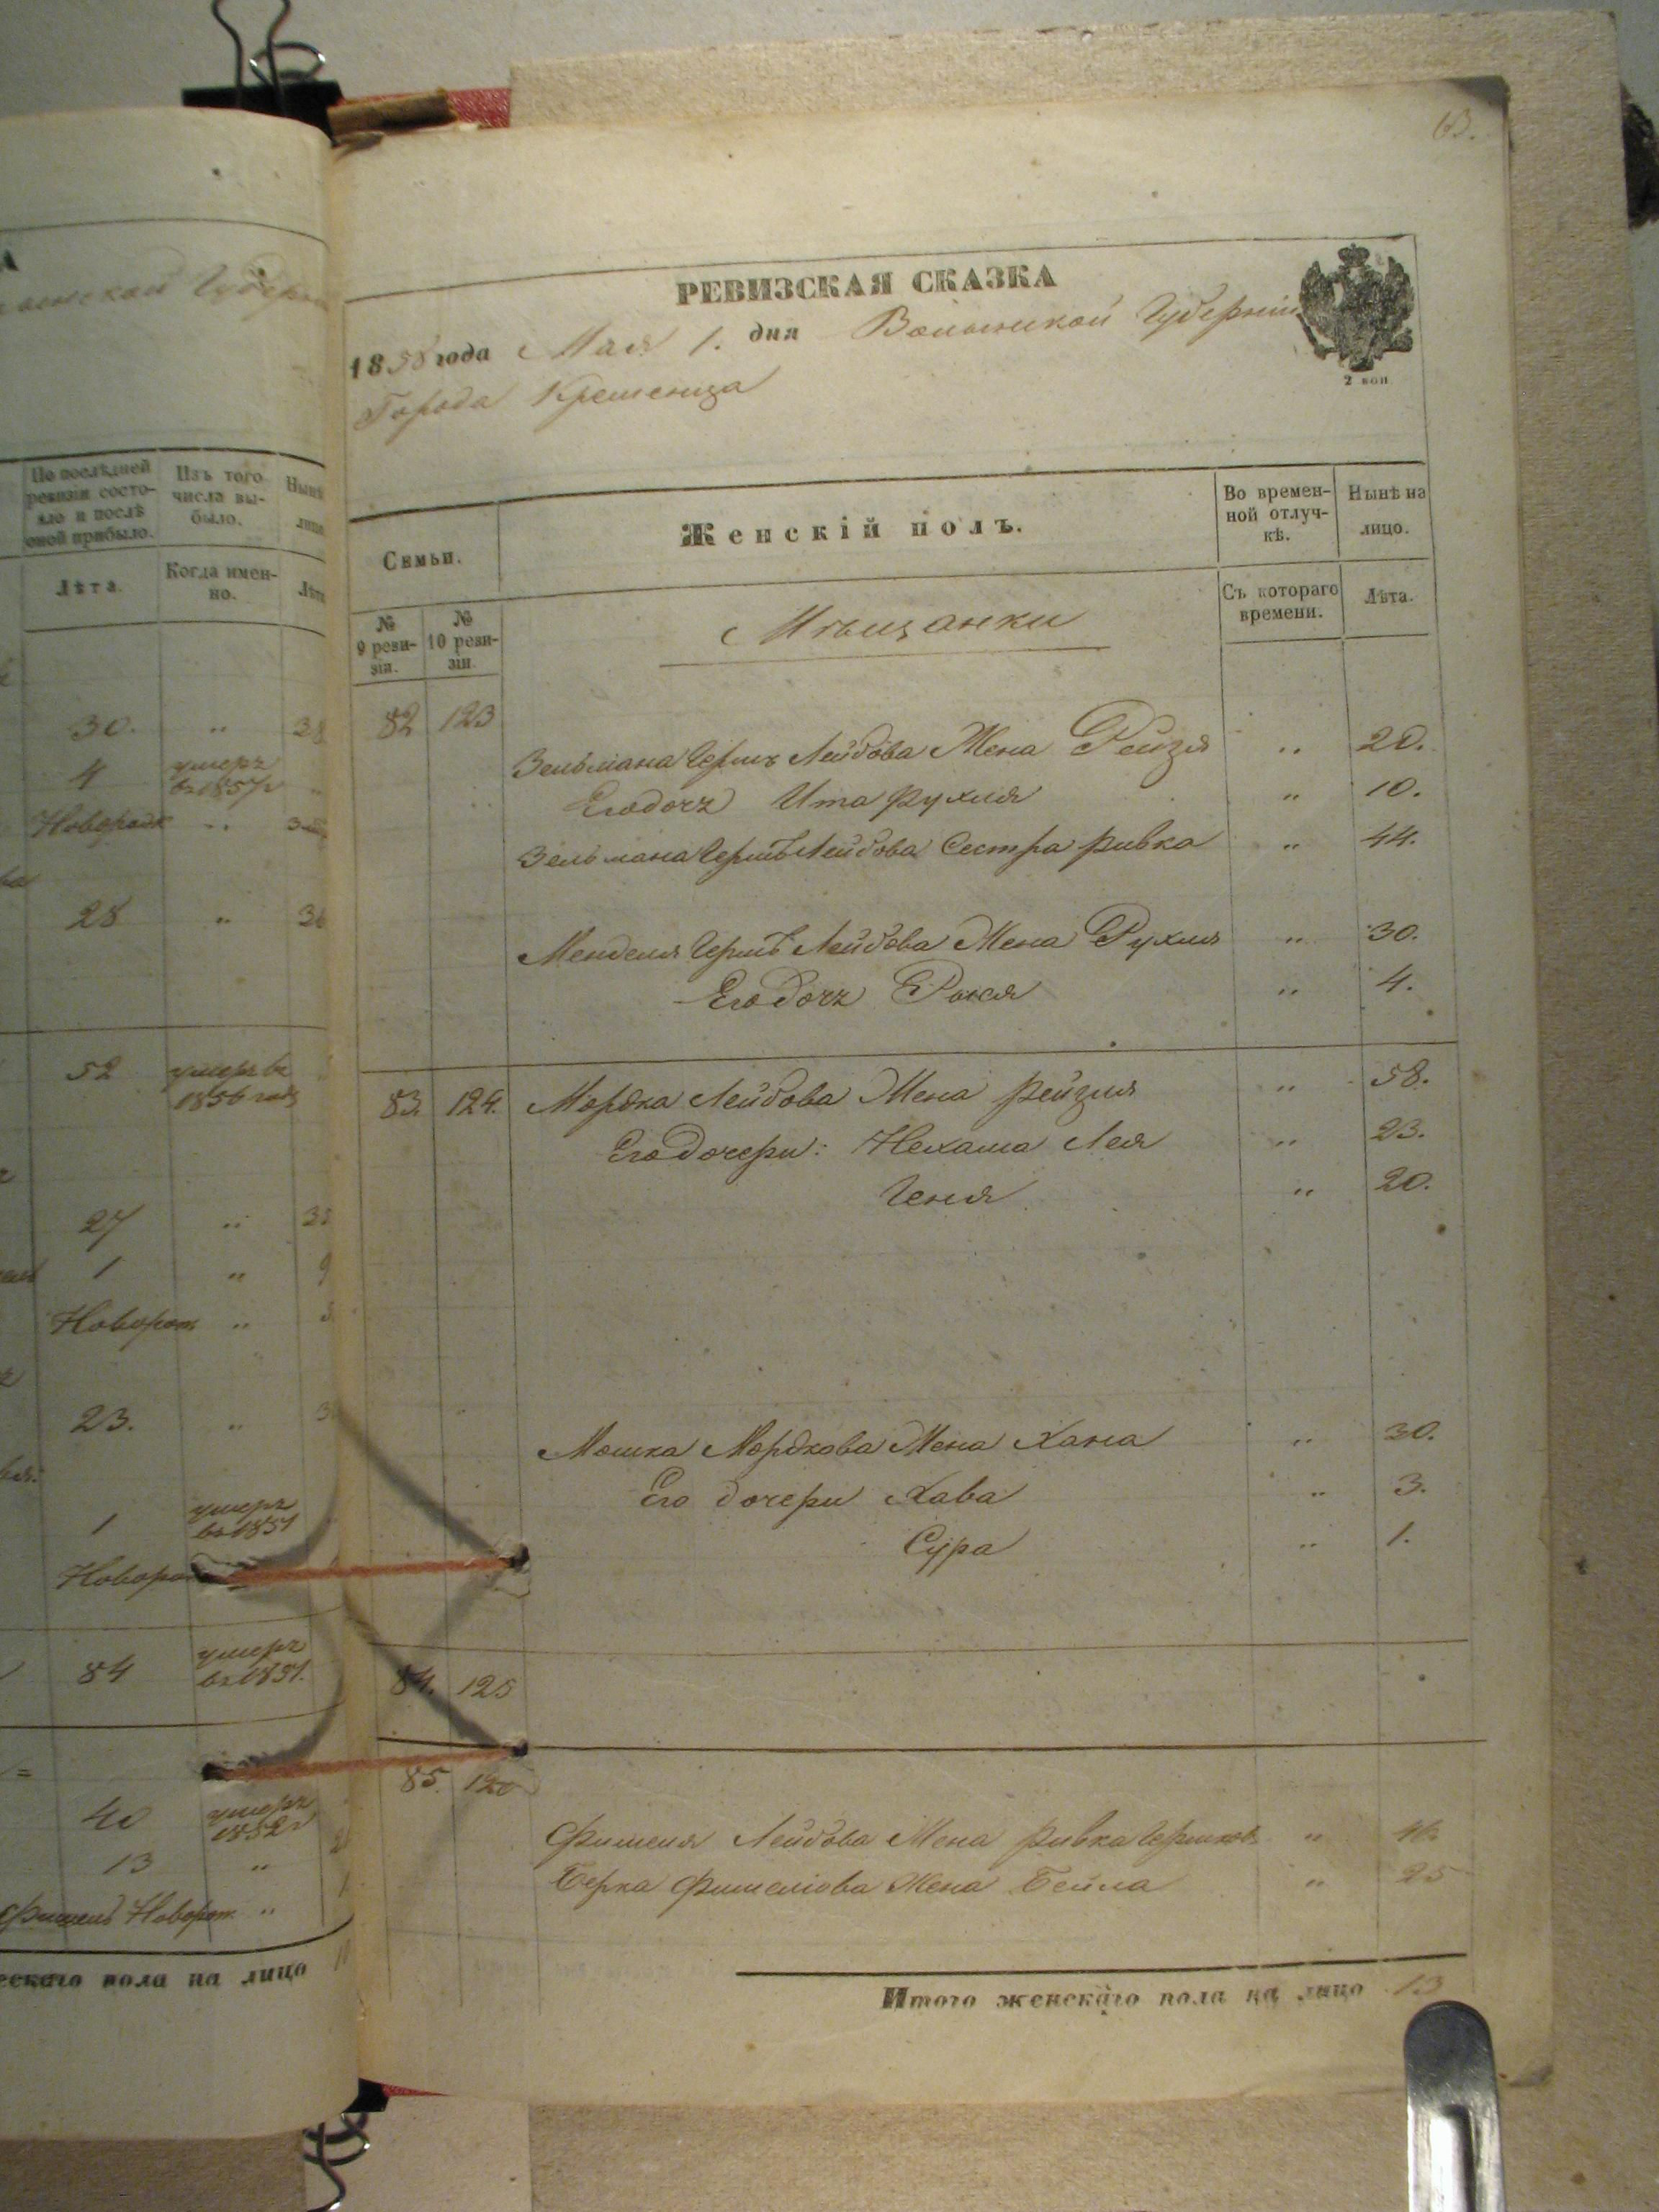 63.
РЕВИЗСКАЯ СКАЗКА
1858 года Мая 1. дня Волынской Губерніи
Города Кременца
2 коп.
Семьи.
Женскій полъ.
Во времен-
ной отлуч-
кѣ.
Нынѣ на
лицо.
№
9 реви-
зіи.
№
10 реви-
зіи.
Мѣщанки
Съ котораго
времени.
Лѣта.
82 123
Зельмана Герш Лейбова Жена Рейзя „ 20.
Его дочь Ита Рухля „ 10.
Зельмана Гершъ Лейбова Сестра Ривка „ 44.
Менделя Гершъ Лейбова Жена Рухля „ 30.
Его дочь „ 4.
83. 124. Мордка Лейбова Жена Рейзля „ 58.
Его дочери: Нехама Лея „ 23.
Геня „ 20.
Мошка Мордкова Жена Хана „ 30.
Его дочери Хава „ 3.
Сура „ 1.
84. 125
85. 126
Фишеля Лейбова Жена Ривка „
Берка Фишелiова Жена Бейла „ 25
Итого женскаго пола на лицо 13
По послѣдней
ревизіи состо-
яло и послѣ
оной прибыло.
Изъ того
числа вы-
было.
Нынѣ
Лѣта.
Когда имен-
но.
30. „
4 умеръ
въ 1857г
„
28 „
52 умеръ въ
1856 году
27 „
1 „
„
23. „
1 умеръ
въ 1851
84 умеръ
въ 1851.
40 умеръ
1852г
13 „
Фишель Новорож. „
пола на лицо